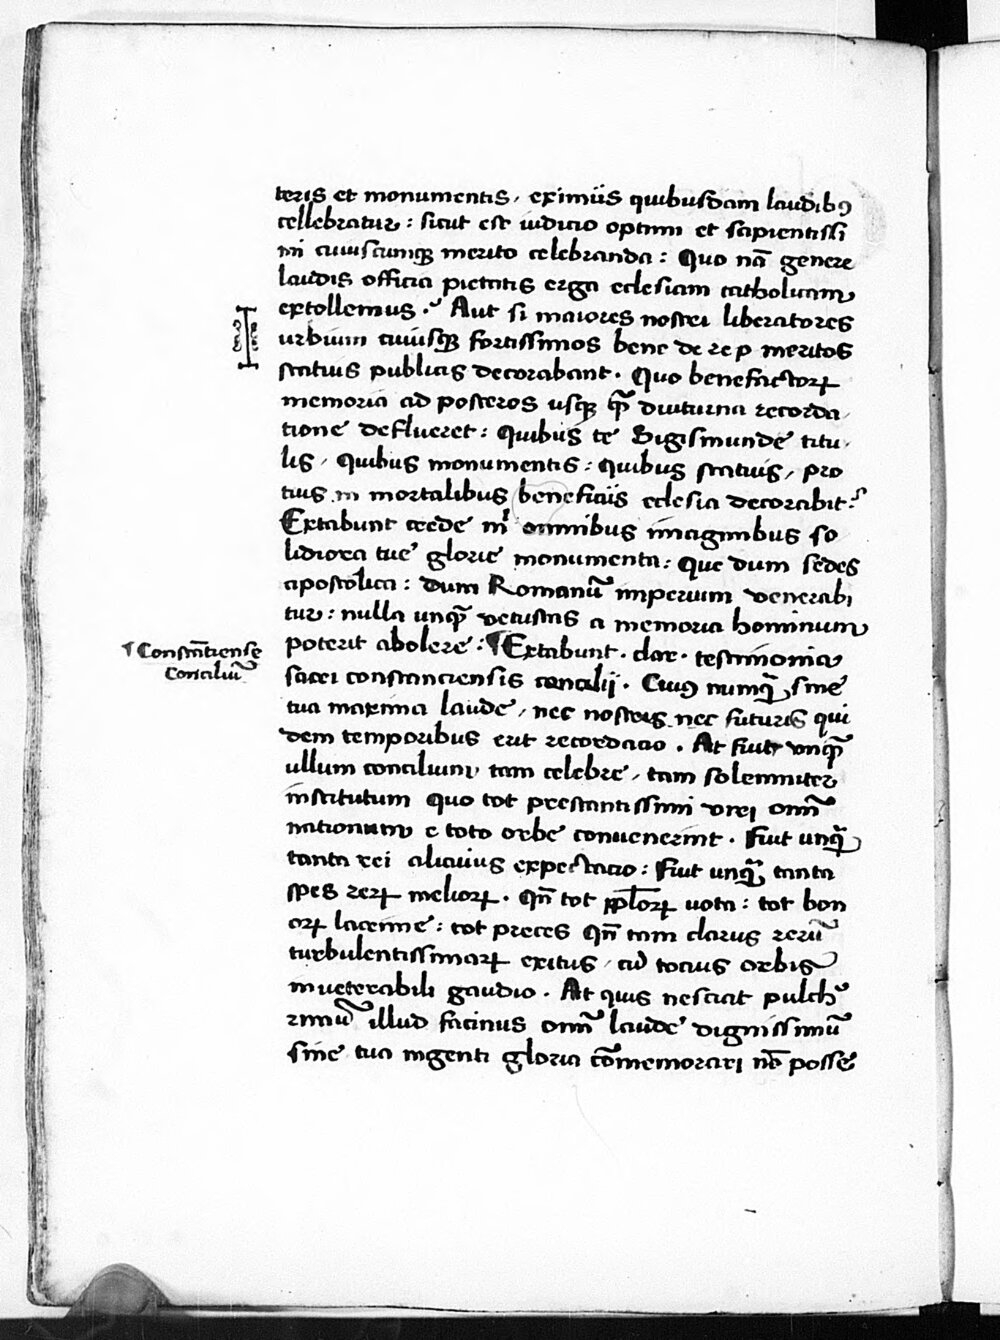 teris et monumentis, eximiis quibusdam laudibꝰ
cellebratur: sicut est iudicio optimi et sapientissi
mi cuiuscumqꝫ merito celebranda: Quo nã genere
laudis officia pietatis erga eclesiam catholicam
extollemus. Aut si maiores nostri liberatores
urbium cuiusqꝫ fortissimos bene de re p meritos
statuis publicis decorabant. Quo benefactoꝝ
memoria ad posteros usqꝫ q̃ diuturna recorda
tione deflueret: Quibus te Sigismunde titu
lis, Quibus monumentis: Quibus statuis, pro
tuis in mortalibus beneficiis eclesia decorabit?
Extabunt crede mi omnibus imaginibus so
lidiora tue glorie monumenta: Que dum sedes
apostolica: dum Romanũ imperium venerabi
tur: nulla unq̃ vetustas a memoria hominum
poterit abolere. ¶Extabunt. clar. testimonia
¶Constãtiense
Conciliũ
sacri constanciensis concilij. Cuiꝰ numq̃ sine
tua maxima laude, nec nostris nec futuris qui
dem temporibus erit recordacio. At fuit vnq̃
ullum concilium tam celebre, tam solemniter
institutum quo tot prestantissimi viri omñ
nationum e toto orbe convenerint. Fuit unq̃
tanta rei alicuius expectacio: Fuit unq̃ tanta
spes reꝝ melioꝝ. Qñ tot pploꝝ uota: tot bon
oꝝ lacrime: tot preces Qñ tam clarus rerũ
turbulentissimaꝝ exitus, cũ tocius orbis
inueterabili gaudio. At quis nesciat pulch
rimũ illud facinus omñ laude dignissimũ
sine tua ingenti gloria cõmemorari nõ posse